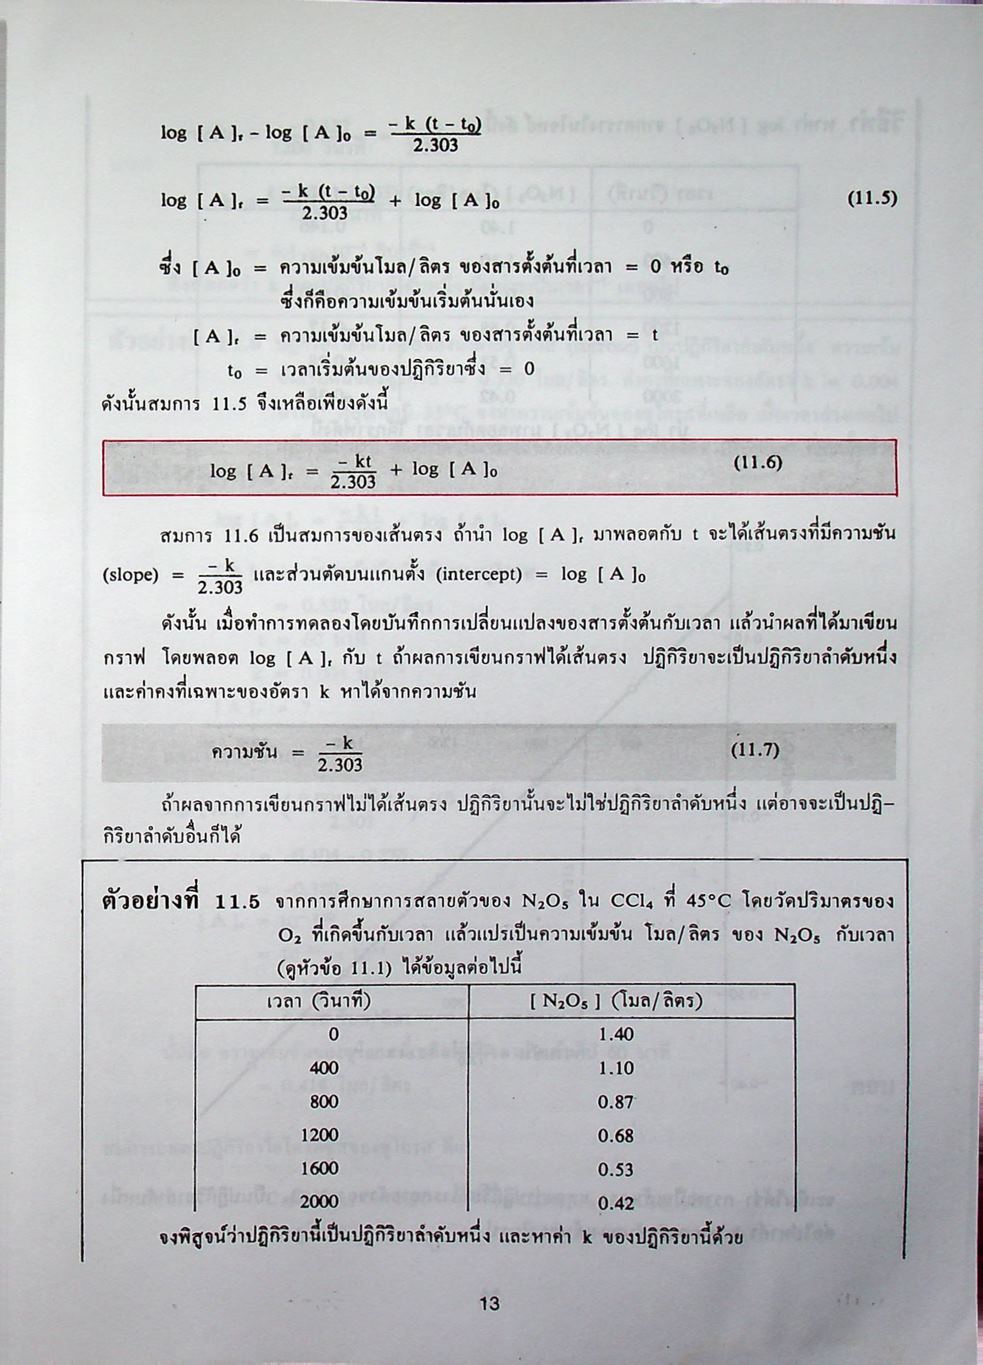 log [ A ]ₜ - log [ A ]₀ = - k (t - t₀) / 2.303
log [ A ]ₜ = - k (t - t₀) / 2.303 + log [ A ]₀ (11.5)
ซึ่ง [ A ]₀ = ความเข้มข้นโมล/ลิตร ของสารตั้งต้นที่เวลา = 0 หรือ t₀
ซึ่งก็คือความเข้มข้นเริ่มต้นนั่นเอง
[ A ]ₜ = ความเข้มข้นโมล/ลิตร ของสารตั้งต้นที่เวลา = t
t₀ = เวลาเริ่มต้นของปฏิกิริยาซึ่ง = 0
ดังนั้นสมการ 11.5 จึงเหลือเพียงดังนี้
log [ A ]ₜ = - kt / 2.303 + log [ A ]₀ (11.6)
สมการ 11.6 เป็นสมการของเส้นตรง ถ้านำ log [ A ]ₜ มาพลอตกับ t จะได้เส้นตรงที่มีความชัน
(slope) = - k / 2.303 และส่วนตัดบนแกนตั้ง (intercept) = log [ A ]₀
ดังนั้น เมื่อทำการทดลองโดยบันทึกการเปลี่ยนแปลงของสารตั้งต้นกับเวลา แล้วนำผลที่ได้มาเขียน
กราฟ โดยพลอต log [ A ]ₜ กับ t ถ้าผลการเขียนกราฟได้เส้นตรง ปฏิกิริยาจะเป็นปฏิกิริยาลำดับหนึ่ง
และค่าคงที่เฉพาะของอัตรา k หาได้จากความชัน
ความชัน = - k / 2.303 (11.7)
ถ้าผลจากการเขียนกราฟไม่ได้เส้นตรง ปฏิกิริยานั้นจะไม่ใช่ปฏิกิริยาลำดับหนึ่ง แต่อาจจะเป็นปฏิ-
กิริยาลำดับอื่นก็ได้
ตัวอย่างที่ 11.5 จากการศึกษาการสลายตัวของ N₂O₅ ใน CCl₄ ที่ 45°C โดยวัดปริมาตรของ
O₂ ที่เกิดขึ้นกับเวลา แล้วแปรเป็นความเข้มข้น โมล/ลิตร ของ N₂O₅ กับเวลา
(ดูหัวข้อ 11.1) ได้ข้อมูลต่อไปนี้
เวลา (วินาที) [ N₂O₅ ] (โมล/ลิตร)
0 1.40
400 1.10
800 0.87
1200 0.68
1600 0.53
2000 0.42
จงพิสูจน์ว่าปฏิกิริยานี้เป็นปฏิกิริยาลำดับหนึ่ง และหาค่า k ของปฏิกิริยานี้ด้วย
13